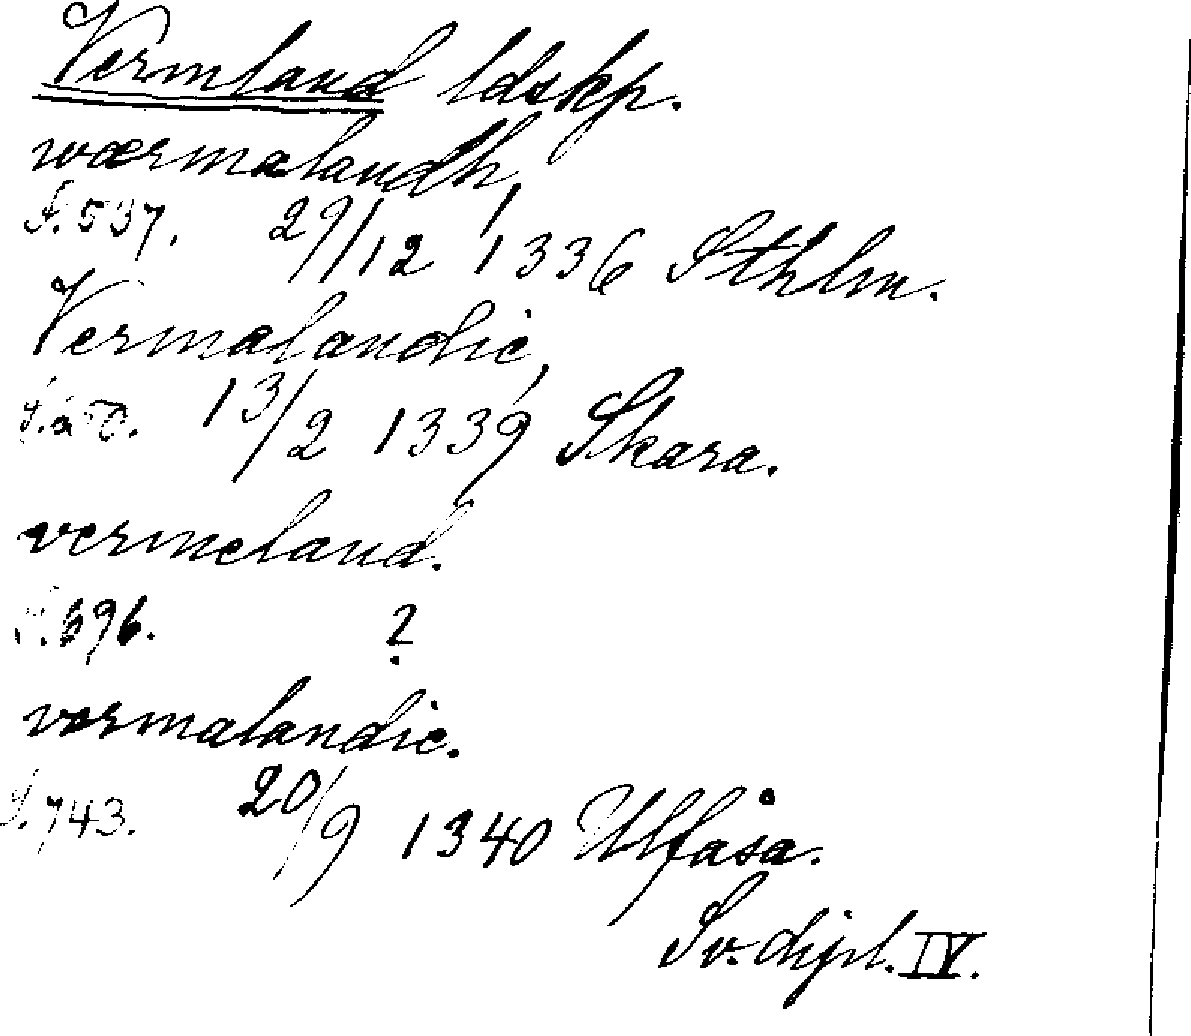 Vermland ldskp.
wærmalandh,
S. 537. 29/12 1336 Sthlm.
Vermalandie,
13/2 1339 Skara.
vermeland.
S. 696. ?
vermalandie.
S. 743. 20/9 1340 Ulfåsa.
Sv. dipl. IV.